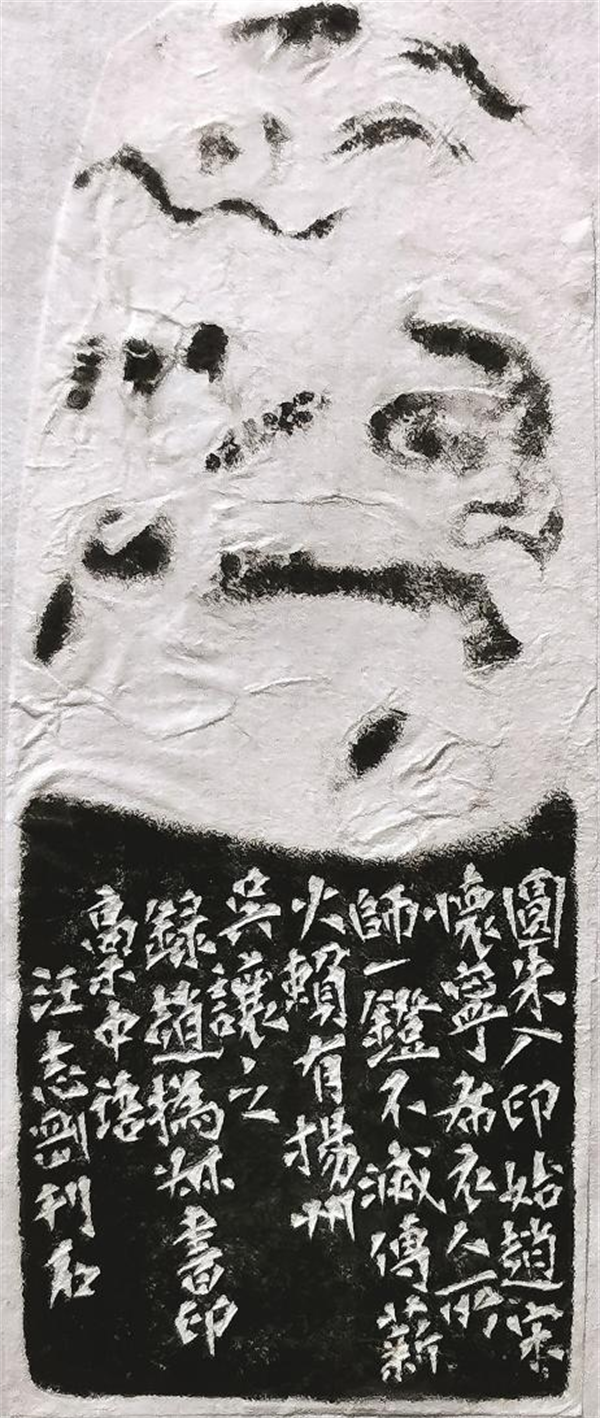 圓朱入印始趙宋
懷寧布衣人所
師一鐙不滅傳薪
火賴有揚州
吳讓之
錄趙撝叔書印
稾中語
汪志剛刊石